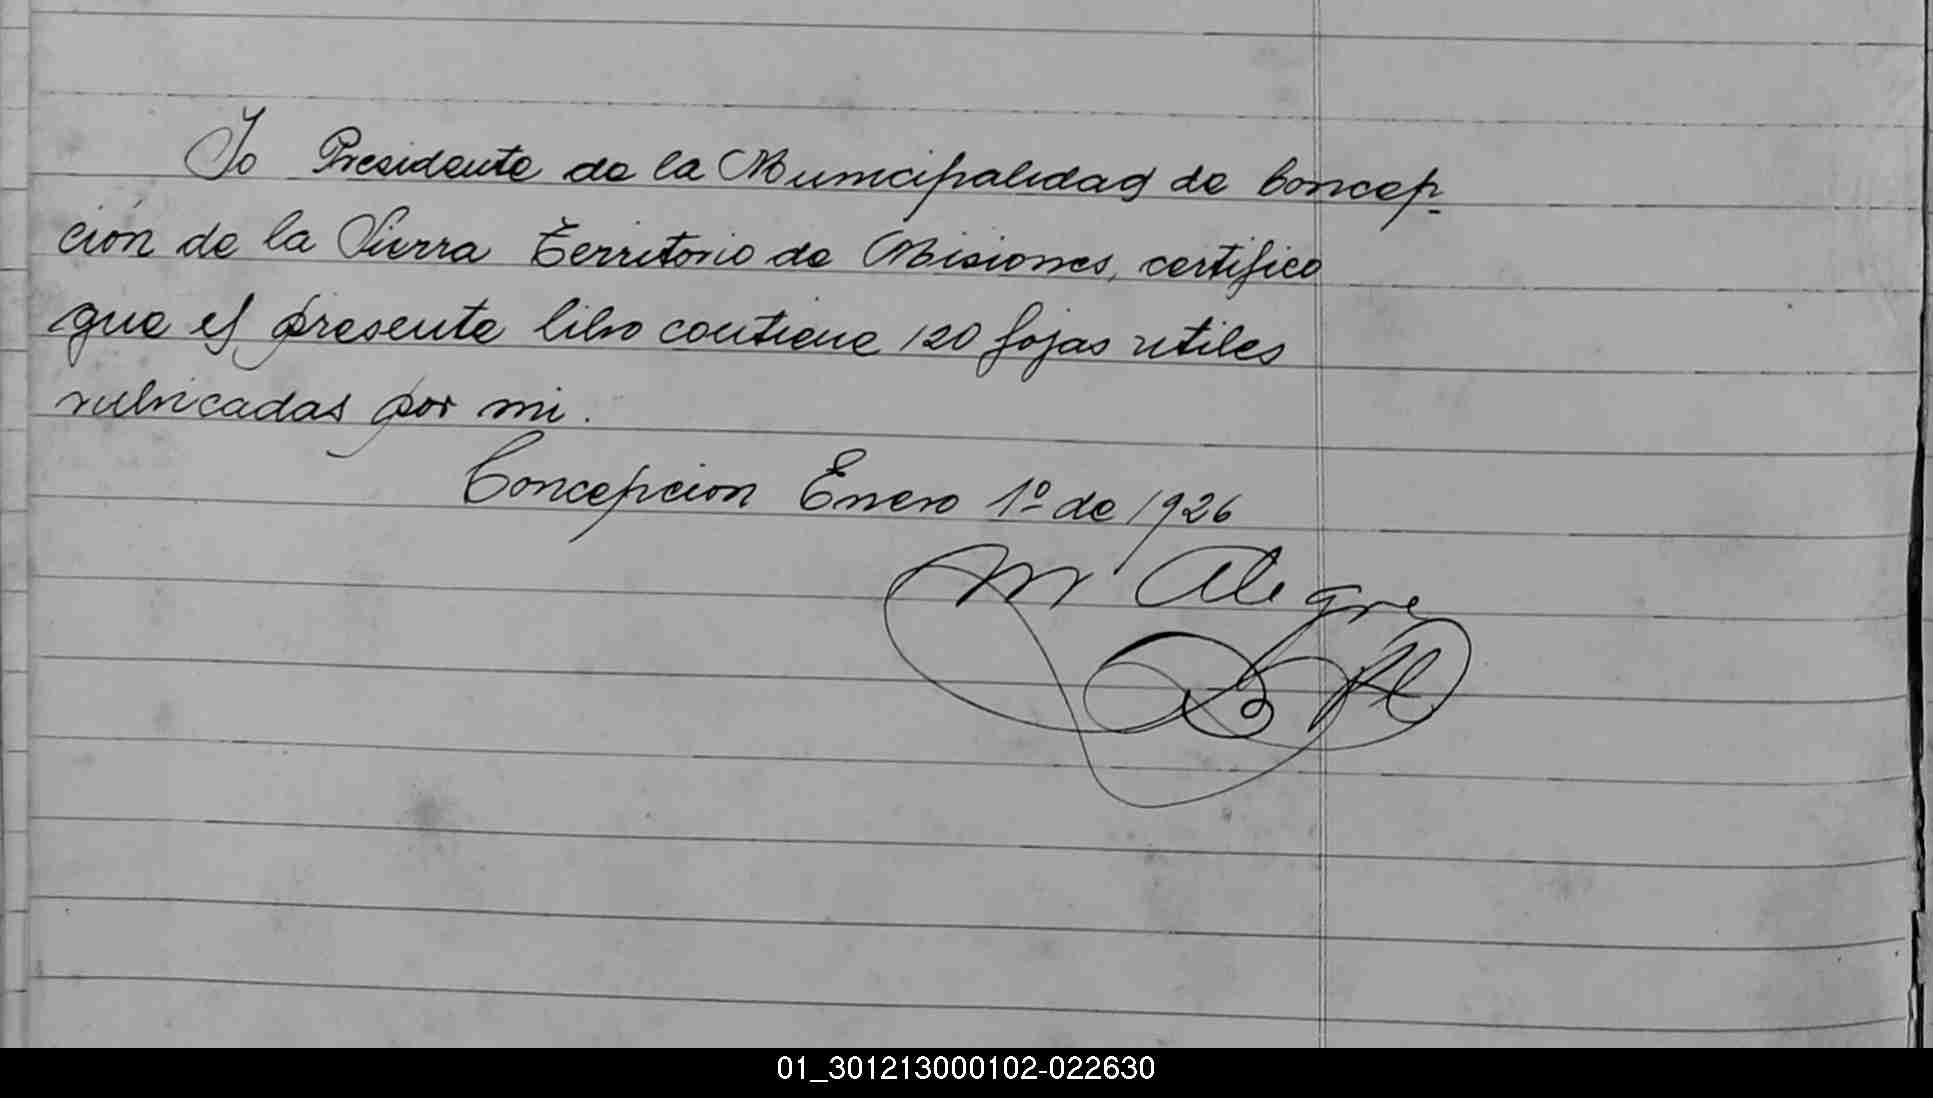 Yo Presidente de la Municipalidad de Concep-
ción de la Sierra Territorio de Misiones, certifico
que el presente libro contiene 120 fojas utiles
rubricadas por mi.
Concepcion Enero 1º de 1926
M Alegre
01_301213000102-022630